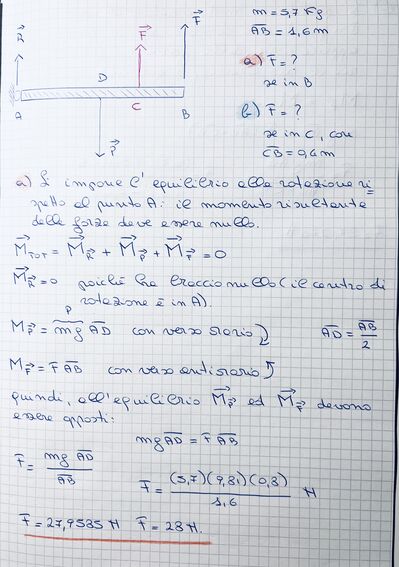 m = 5,7 Kg
AB = 1,6 m
R F F
a) F = ?
se in B
D
A C B
b) F = ?
se in C, con
CB = 0,4 m
P
a) Si impone l'equilibrio alla rotazione ri=
spetto al punto A: il momento risultante
delle forze deve essere nullo.
M TOT = M R + M P + M F = 0
M R = 0 poiché ha braccio nullo (il centro di
rotazione è in A).
P
M P = mg AD con verso orario AD = AB/2
M F = F AB con verso antiorario
quindi, all'equilibrio M P ed M F devono
essere opposti:
mg AD = F AB
F = mg AD / AB F = (5,7)(9,81)(0,8) / 1,6 N
F = 27,9585 N F = 28 N.